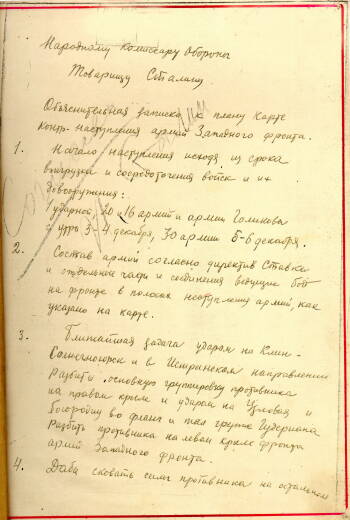 Народному комиссару обороны
Товарищу Сталину
Объяснительная записка к плану карте
контр-наступления армий Западного фронта.
1. Начало наступления исходя из срока
выгрузки и сосредоточения войск и их
довооружения:
1 ударной, 20, 16 армий и армии Голикова
с утра 3-4 декабря, 30 армии 5-6 декабря.
2. Состав армий согласно директив Ставки
и отдельные части и соединения ведущие бой
на фронте в полосах наступления армий, как
указано на карте.
3. Ближайшая задача ударом на Клин-
Солнечногорск и в Истринском направлении
разбить основную группировку противника
на правом крыле и ударом на Узловая и
Богородицк во фланг и тыл группе Гудериана
разбить противника на левом крыле фронта
армий Западного фронта.
4. Дабы сковать силы противника на остальном